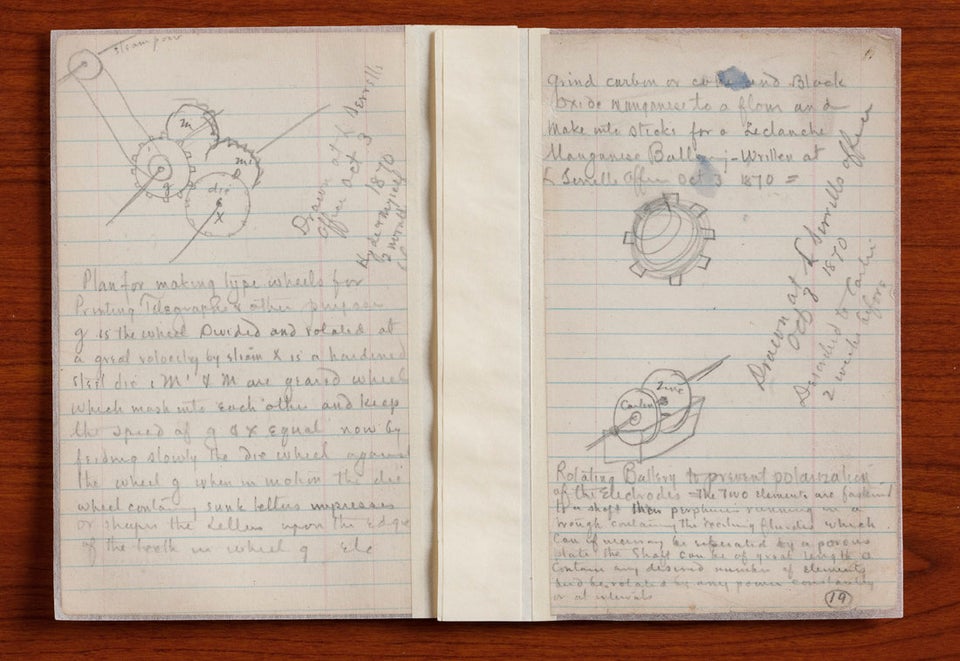 steam power
m
m'
g
die
X
Drawn at L Serrills
Office Oct 3
1870
Plan for making type wheels for
Printing Telegraphs & other purposes
g is the wheel Divided and rotated at
a great velocity by steam X is a hardened
steel die & M' & M are geared wheels
which mash into each other and keep
the speed of g & X Equal now by
feeding slowly the die wheel against
the wheel g when in motion the die
wheel containing sunk letters impresses
or shapes the Letters upon the Edge
of the teeth in wheel g Etc
Grind carbon or and Black
Oxide Manganese to a flour and
Make into sticks for a Leclanche
Manganese Battery - Written at
L Serrills Office Oct 3 1870 =
Drawn at L Serrills Office
Oct 3 1870
Described to
2 weeks before
Zinc
Carbon
Rotating Battery to prevent polarization
of the Electrodes = The Two Elements are fastened
to a shaft their periphery running in a
trough containing the Exciting fluids which
Can if necessary be seperated by a porous
plate the Shaft can be of great length &
Contain any desired number of Elements
and be rotated by any power constantly
or at intervals
19